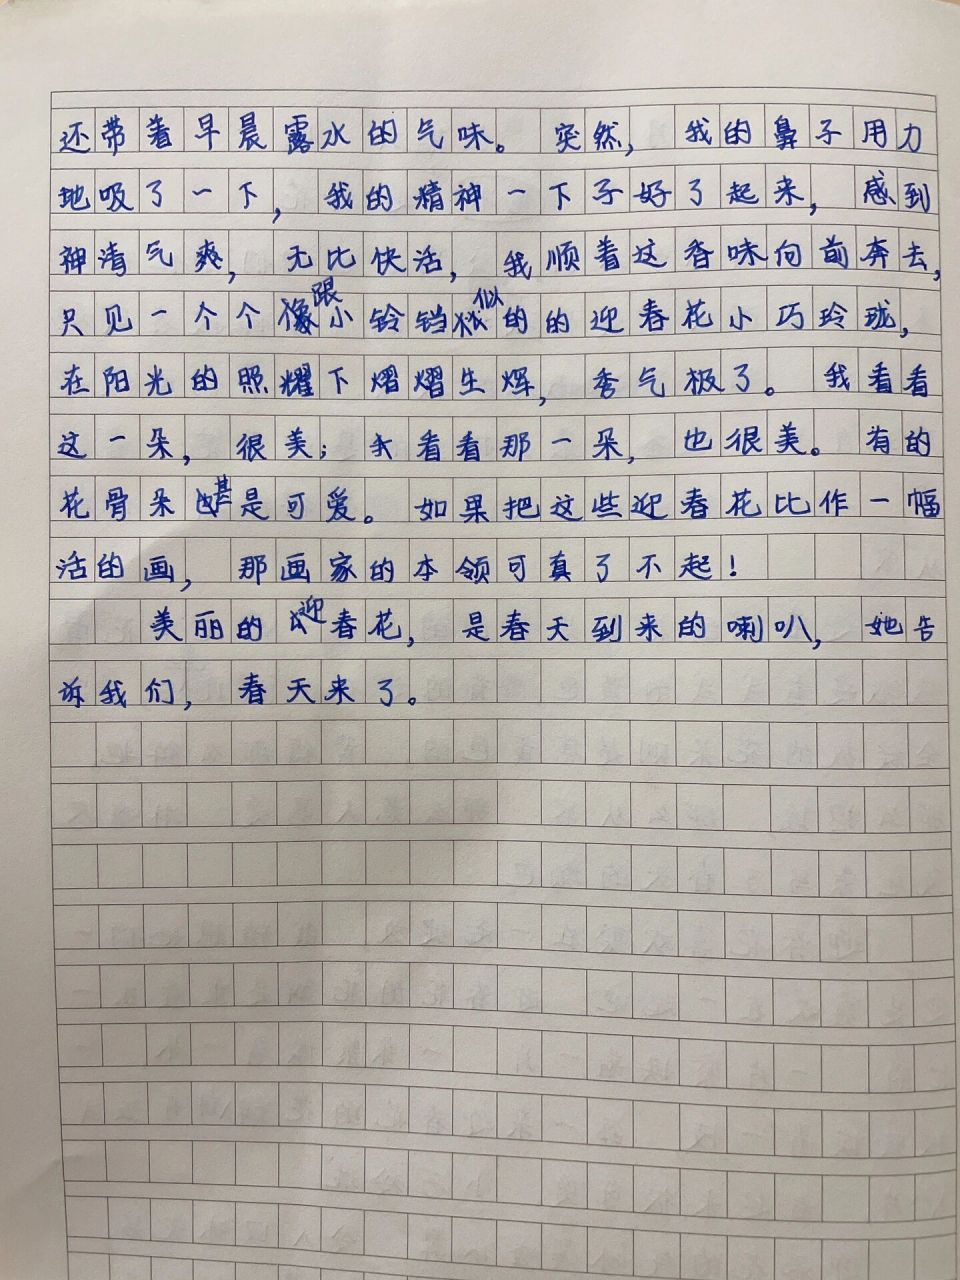 还带着早晨露水的气味。突然，我的鼻子用力
地吸了一下，我的精神一下子好了起来，感到
神清气爽，无比快活，我顺着这香味向前奔去，
只见一个个跟小铃铛似的的迎春花小巧玲珑，
在阳光的照耀下熠熠生辉，秀气极了。我看看
这一朵，很美；我看看那一朵，也很美。有的
花骨朵甚是可爱。如果把这些迎春花比作一幅
活的画，那画家的本领可真了不起！
美丽的迎春花，是春天到来的喇叭，她告
诉我们，春天来了。